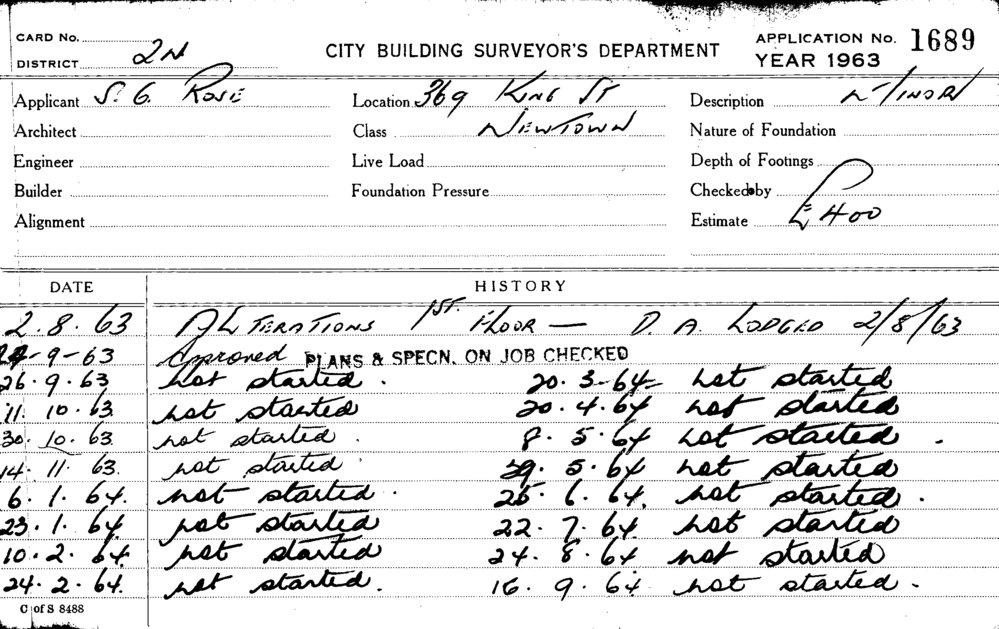 CARD No.
DISTRICT 2N
CITY BUILDING SURVEYOR'S DEPARTMENT
APPLICATION No. 1689
YEAR 1963
Applicant S. G. Rose Location 369 King St Description Minor
Architect Class Newtown Nature of Foundation
Engineer Live Load Depth of Footings
Builder Foundation Pressure Checked by
Alignment Estimate £400
DATE HISTORY
2.8.63 Alterations 1st. Floor — D.A. Lodged 2/8/63
-9-63 Approved PLANS & SPECN. ON JOB CHECKED
26.9.63 not started. 20.3.64 not started
11.10.63 not started 20.4.64 not started
30.10.63 not started. 8.5.64 not started.
14.11.63. not started. 29.5.64 not started
6.1.64. not started. 25.6.64. not started.
23.1.64 not started 22.7.64. not started
10.2.64. not started 24.8.64 not started
24.2.64. not started. 16.9.64 not started.
C of S 8488